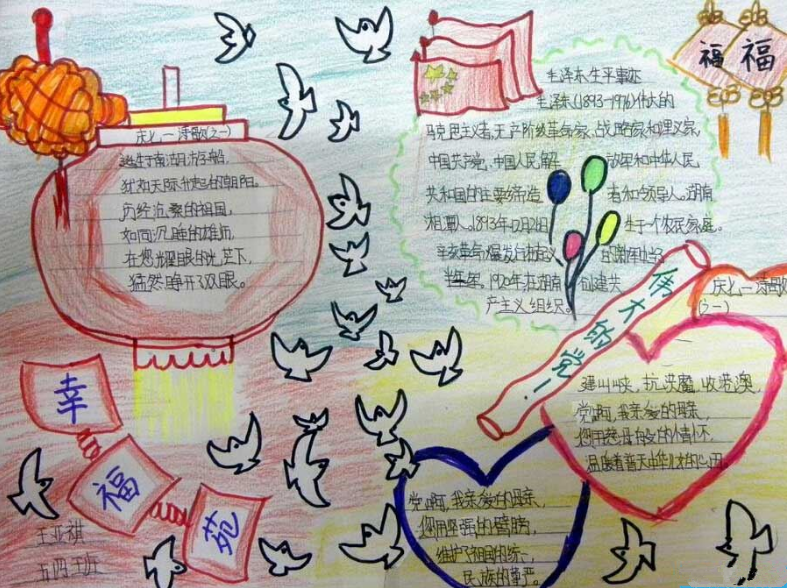 庆七一诗歌(之一)
诞生于南湖的游船,
犹如天际升起的朝阳。
历经沧桑的祖国,
如同沉睡的雄狮,
在您光耀眼的光芒下,
猛然睁开了双眼。
毛泽东生平事迹
毛泽东(1893-1976)伟大的
马克思主义者,无产阶级革命家、战略家和理论家,
中国共产党、中国人民解放军和中华人民
共和国的主要缔造者和领导人。湖南
湘潭人。1893年12月26日生于一个农民家庭。
辛亥革命爆发后
1920年在湖南创建共
产主义组织。
福福
伟大的党!
庆七一诗歌
(之一)
建山峡,抗洪魔,收港澳,
党啊,我亲爱的母亲,
您用慈母般的情怀,
温暖着普天中华儿女的心田
党啊,我亲爱的母亲,
您用坚强的臂膀,
维护了祖国的统一,
民族的尊严。
幸
福
苑
王亚祺